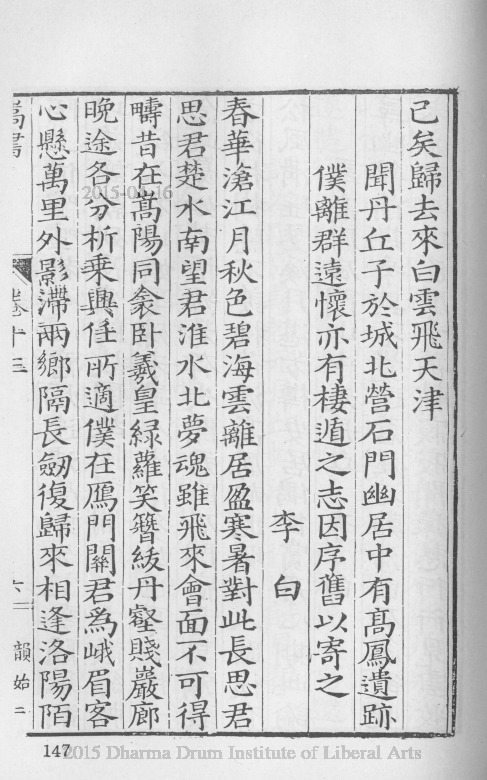 己矣歸去來白雲飛天津
聞丹丘子於城北營石門幽居中有高鳳遺跡
僕離群遠懷亦有棲遁之志因序舊以寄之
李白
春華滄江月秋色碧海雲離居盈寒暑對此長思君
思君楚水南望君淮水北夢魂雖飛來會面不可得
疇昔在嵩陽同衾臥羲皇緑蘿笑簪紱丹壑賤巖廊
晚途各分析乗興任所適僕在鴈門關君為峨眉客
心懸萬里外影滯兩鄉隔長劒復歸來相逢洛陽陌
嵩書
卷十三
六一
韻始二
147
2015-04-16
2015 Dharma Drum Institute of Liberal Arts